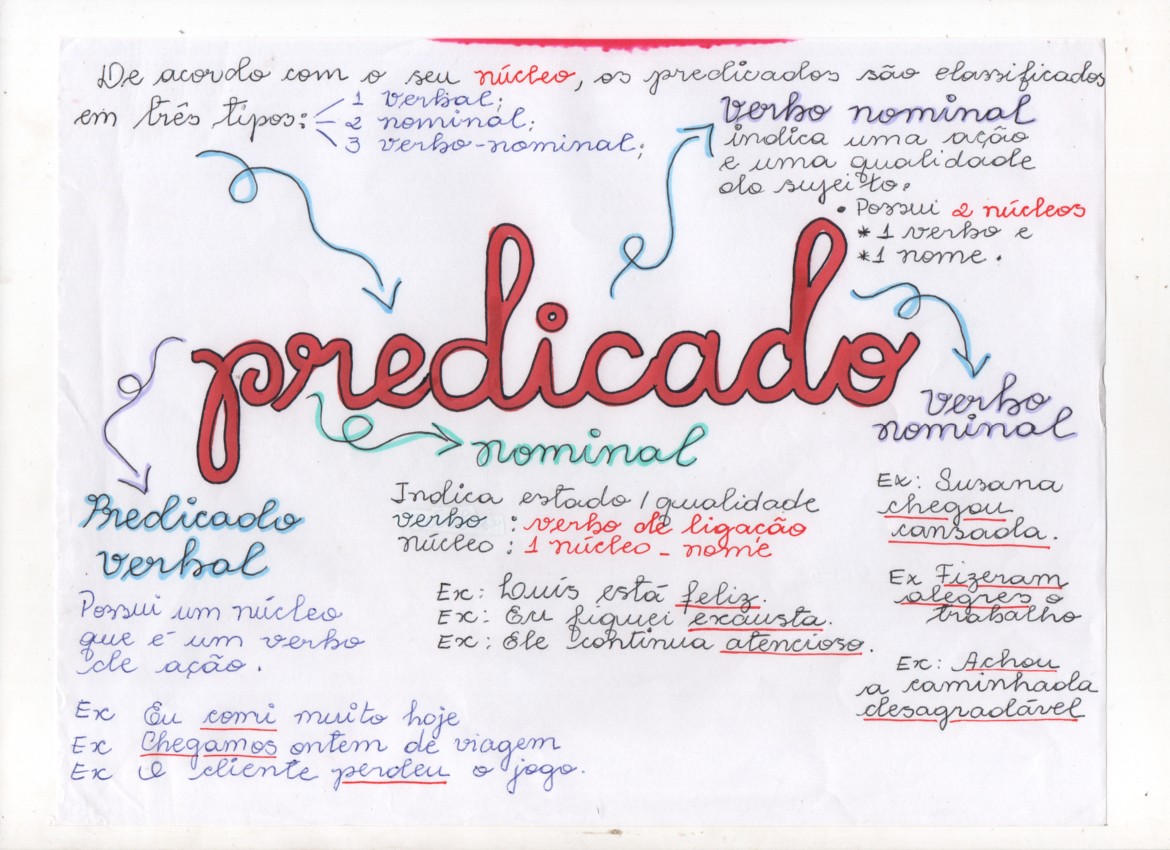 De acordo com o seu núcleo, os predicados são classificados
em três tipos:
1 verbal;
2 nominal;
3 verbo-nominal;
verbo nominal
indica uma ação
e uma qualidade
do sujeito.
• Possui 2 núcleos
*1 verbo e
*1 nome.
predicado
verbo
nominal
Ex: Susana
chegou
cansada.
Ex Fizeram
alegres o
trabalho
Ex: Achou
a caminhada
desagradável
nominal
Indica estado / qualidade
verbo : verbo de ligação
núcleo : 1 núcleo - nome
Ex: Luís está feliz.
Ex: Eu fiquei exausta.
Ex: Ele continua atencioso.
Predicado
verbal
Possui um núcleo
que é um verbo
de ação.
Ex Eu comi muito hoje
Ex Chegamos ontem de viagem
Ex O cliente perdeu o jogo.